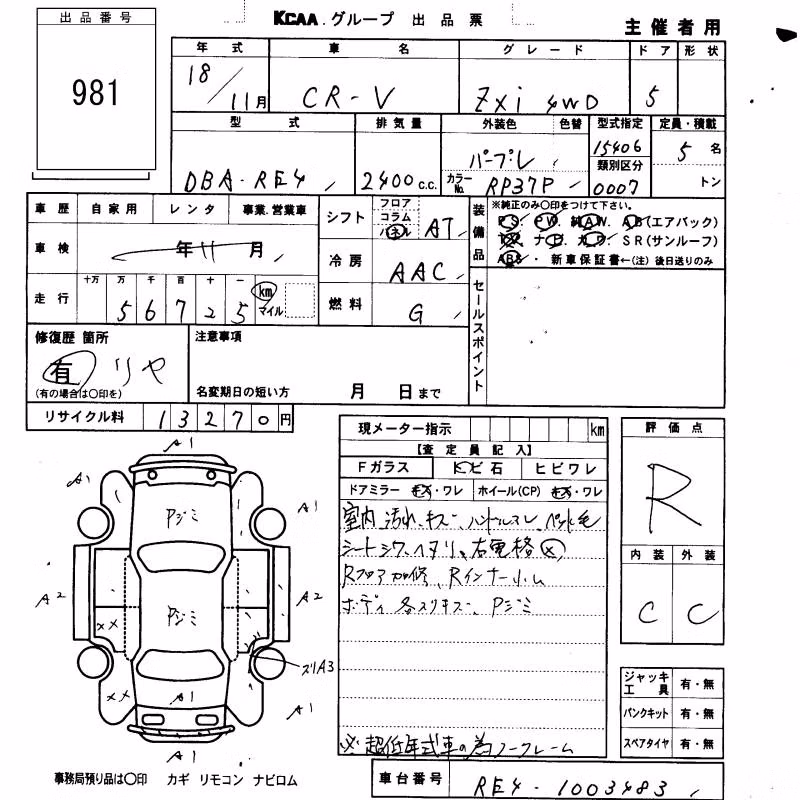 KCAA グループ 出品票
主催者用
出品番号
981
年式 車名 グレード ドア 形状
18/11月 CR-V ZXi 4WD 5
型式 排気量 外装色 色替 型式指定 定員・積載
DBA-RE4 2400c.c. パープル 15406 5名
カラーNo. RP37P 類別区分 0007 トン
車歴 自家用 レンタ 事業.営業車
車検 年11月
走行 十万 万 千 百 十 一
5 6 7 2 5 km マイル
シフト フロア コラム パネル AT
冷房 AAC
燃料 G
装備品 ※純正のみ〇印をつけて下さい。
PS. PW. 純AW. AB(エアバック)
TV. ナビ. カワ. SR(サンルーフ)
ABS・新車保証書←(注)後日送りのみ
セールスポイント
修復歴 箇所
有 リヤ
(有の場合は〇印を)
注意事項
名変期日の短い方 月 日まで
リサイクル料 13270円
現メーター指示 km
【査定員記入】
Fガラス トビ石 ヒビワレ
ドアミラー キズ・ワレ ホイール(CP) キズ・ワレ
室内 汚れ、キズ、ハンドルスレ、ペット毛
シートシワ、ヘタリ、右電格 ×
Rフロア加修、Rインナー小ム
ボディ 各スリキズ、Pジミ
※超低年式車の為ノークレーム
評価点
R
内装 外装
C C
ジャッキ工具 有・無
パンクキット 有・無
スペアタイヤ 有・無
A1
A1
A1
Pジミ
A2
A2
Pジミ
××
スリA3
××
A1
A1
A1
事務局預り品は〇印 カギ リモコン ナビロム
車台番号 RE4-1003483